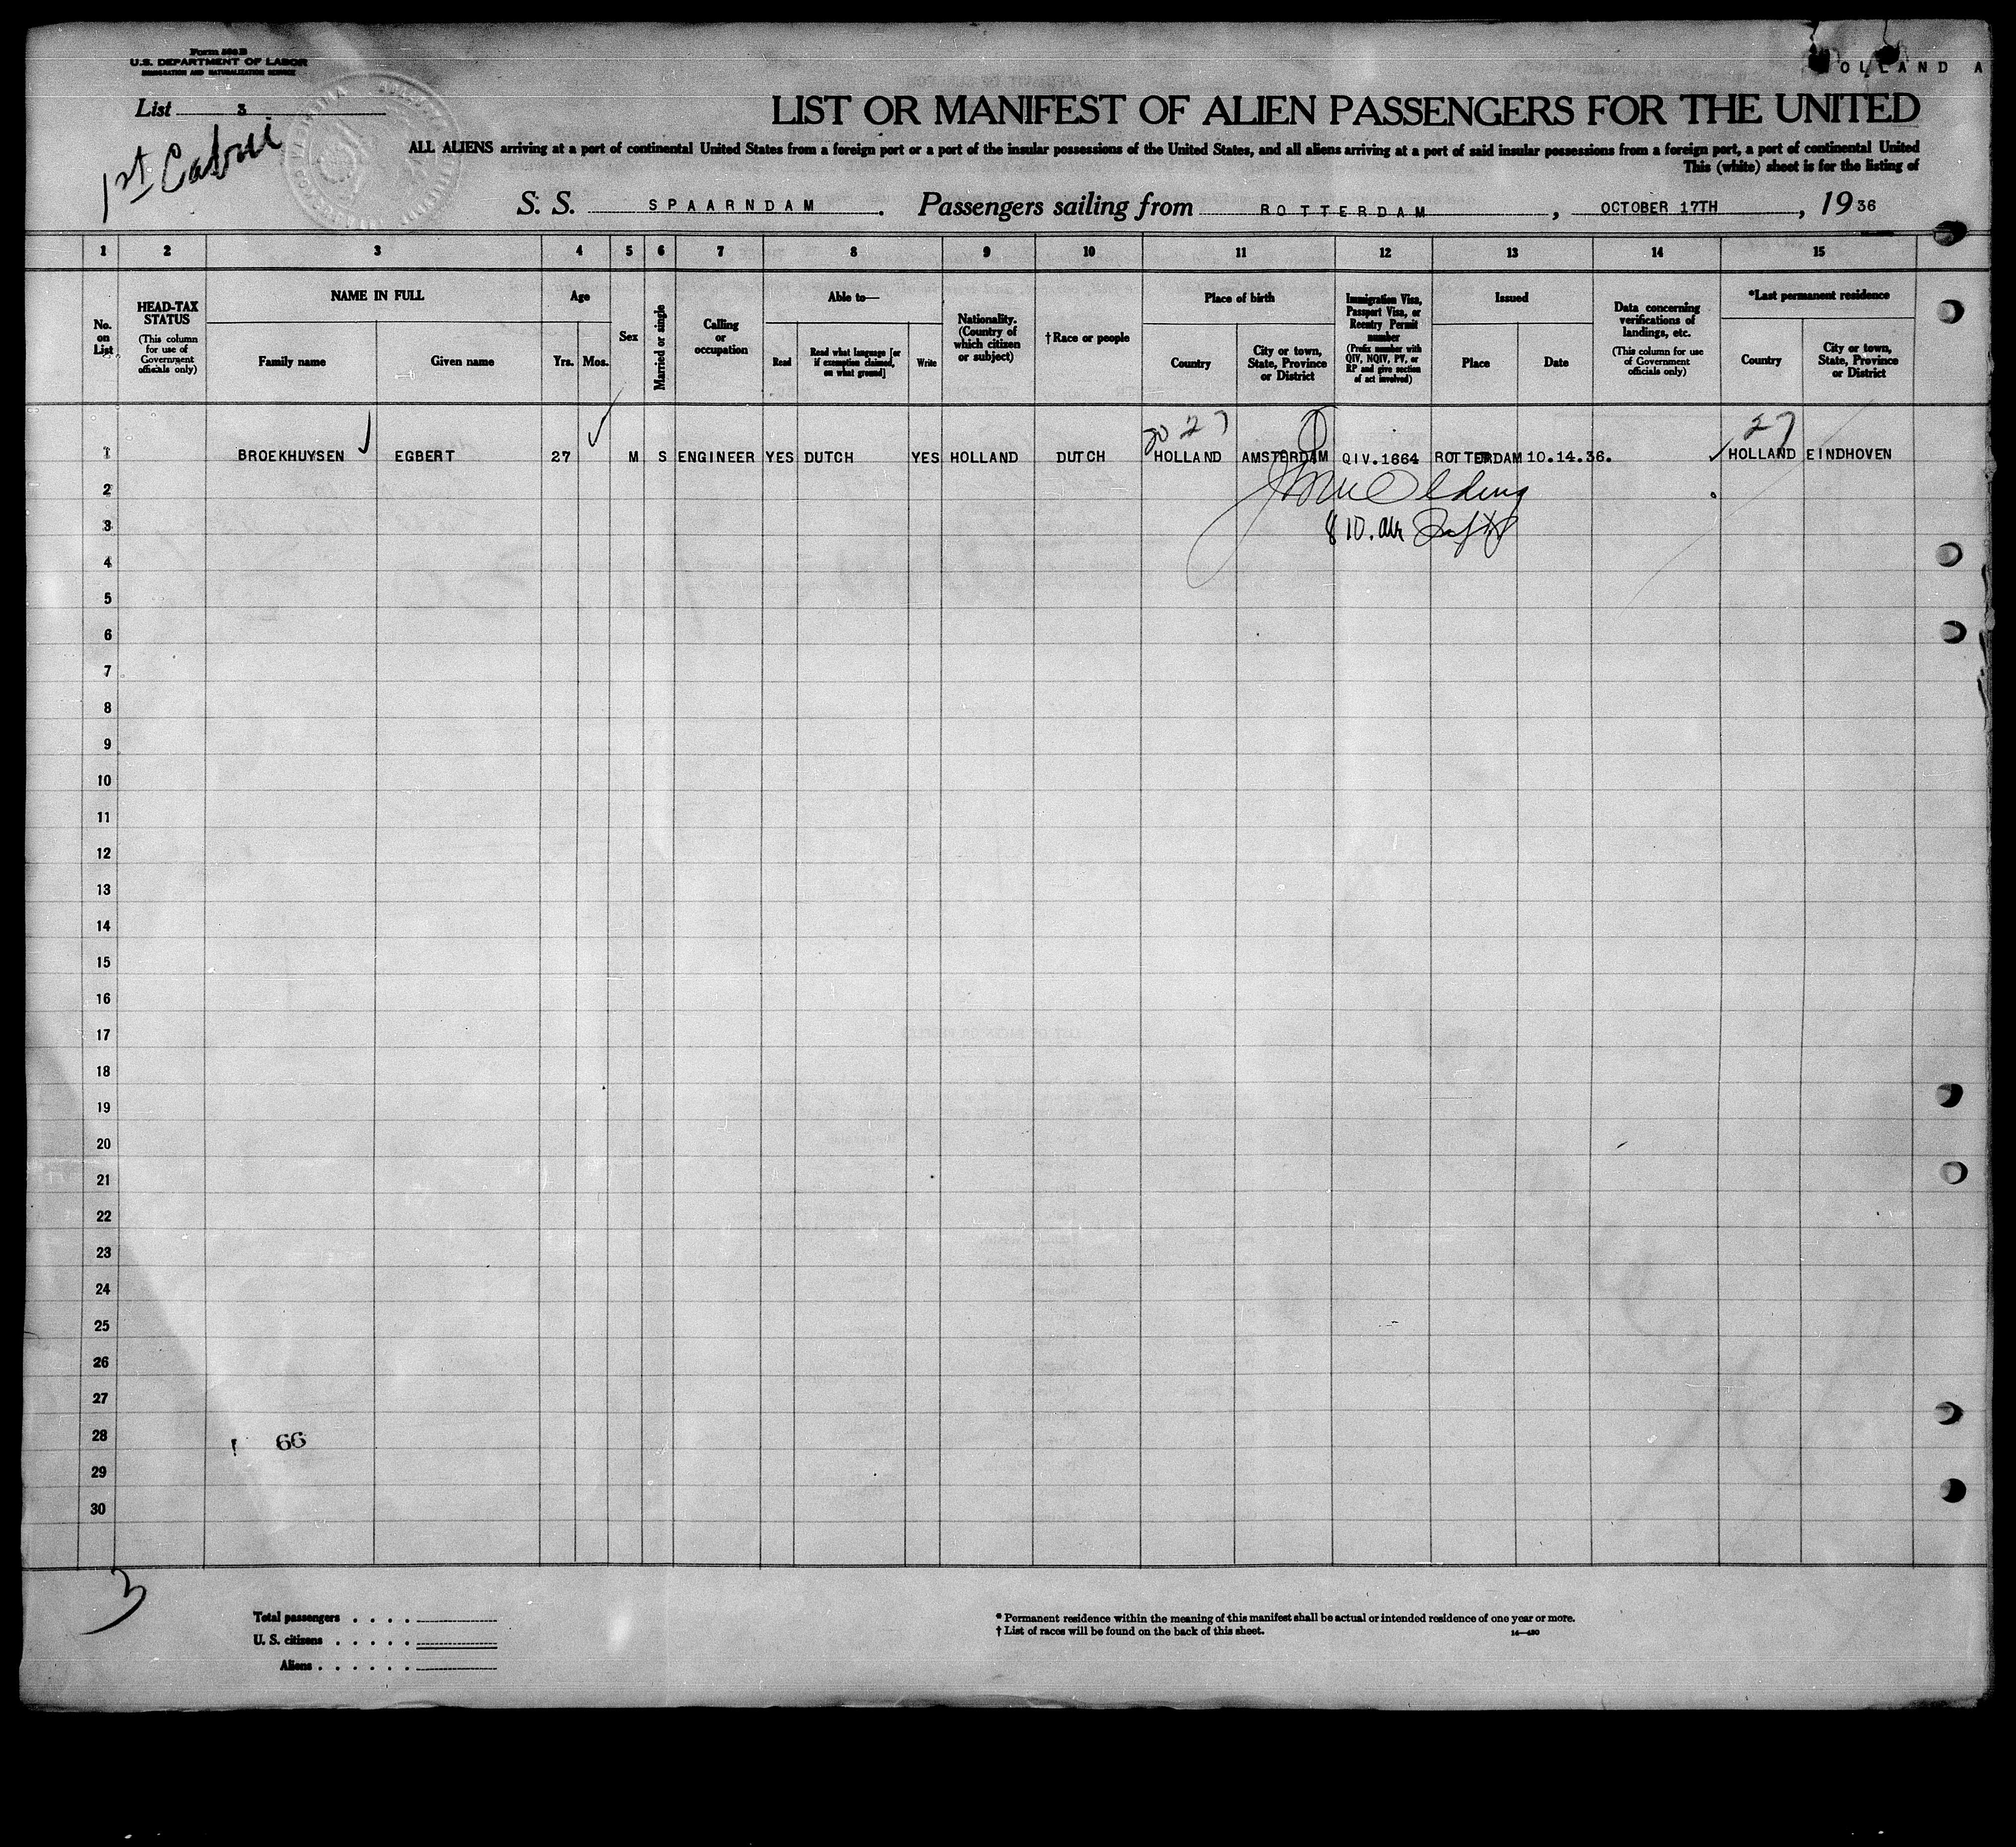 Form 500 B
U.S. DEPARTMENT OF LABOR
IMMIGRATION AND NATURALIZATION SERVICE
OLLAND A
List 3
1st Cabin
LIST OR MANIFEST OF ALIEN PASSENGERS FOR THE UNITED
ALL ALIENS arriving at a port of continental United States from a foreign port or a port of the insular possessions of the United States, and all aliens arriving at a port of said insular possessions from a foreign port, a port of continental United
This (white) sheet is for the listing of
S. S. SPAARNDAM. Passengers sailing from ROTTERDAM, OCTOBER 17TH, 1936
1 2 3 4 5 6 7 8 9 10 11 12 13 14 15
No. on List
HEAD-TAX STATUS
(This column for use of Government officials only)
NAME IN FULL
Family name
Given name
Age
Yrs.
Mos.
Sex
Married or single
Calling or occupation
Able to—
Read
Read what language [or if exemption claimed, on what ground]
Write
Nationality. (Country of which citizen or subject)
†Race or people
Place of birth
Country
City or town, State, Province or District
Immigration Visa, Passport Visa, or Reentry Permit number
(Prefix number with QIV, NQIV, PV, or RP and give section of act involved)
Issued
Place
Date
Data concerning verifications of landings, etc.
(This column for use of Government officials only)
*Last permanent residence
Country
City or town, State, Province or District
27
27
1 BROEKHUYSEN EGBERT 27 M S ENGINEER YES DUTCH YES HOLLAND DUTCH HOLLAND AMSTERDAM QIV.1664 ROTTERDAM 10.14.36. HOLLAND EINDHOVEN
2
3
4
5
6
7
8
9
10
11
12
13
14
15
16
17
18
19
20
21
22
23
24
25
26
27
28
66
29
30
3
Total passengers
U. S. citizens
Aliens
* Permanent residence within the meaning of this manifest shall be actual or intended residence of one year or more.
† List of races will be found on the back of this sheet.
14—430